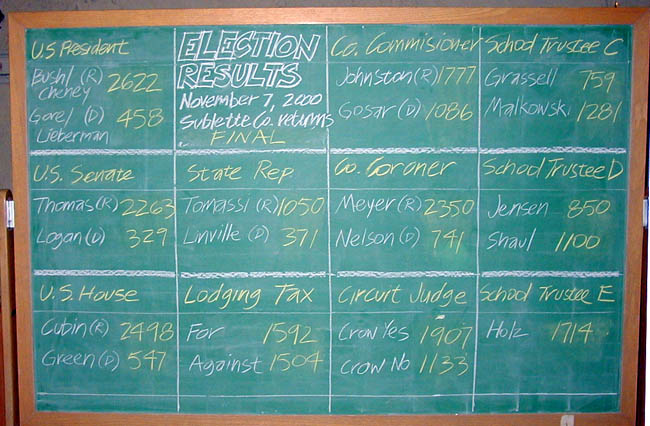 U.S President
Bush/ (R) 2622
Cheney
Gore/ (D) 458
Lieberman
ELECTION
RESULTS
November 7, 2000
Sublette Co. returns
FINAL
Co. Commisioner
Johnston (R) 1777
Gosar (D) 1086
School Trustee C
Grassell 759
Malkowski 1281
U.S. Senate
Thomas (R) 2263
Logan (D) 329
State Rep
Tomassi (R) 1050
Linville (D) 371
Co. Coroner
Meyer (R) 2350
Nelson (D) 741
School Trustee D
Jensen 850
Shaul 1100
U.S. House
Cubin (R) 2498
Green (D) 547
Lodging Tax
For 1592
Against 1504
Circuit Judge
Crow Yes 1907
Crow No 1133
School Trustee E
Holz 1714